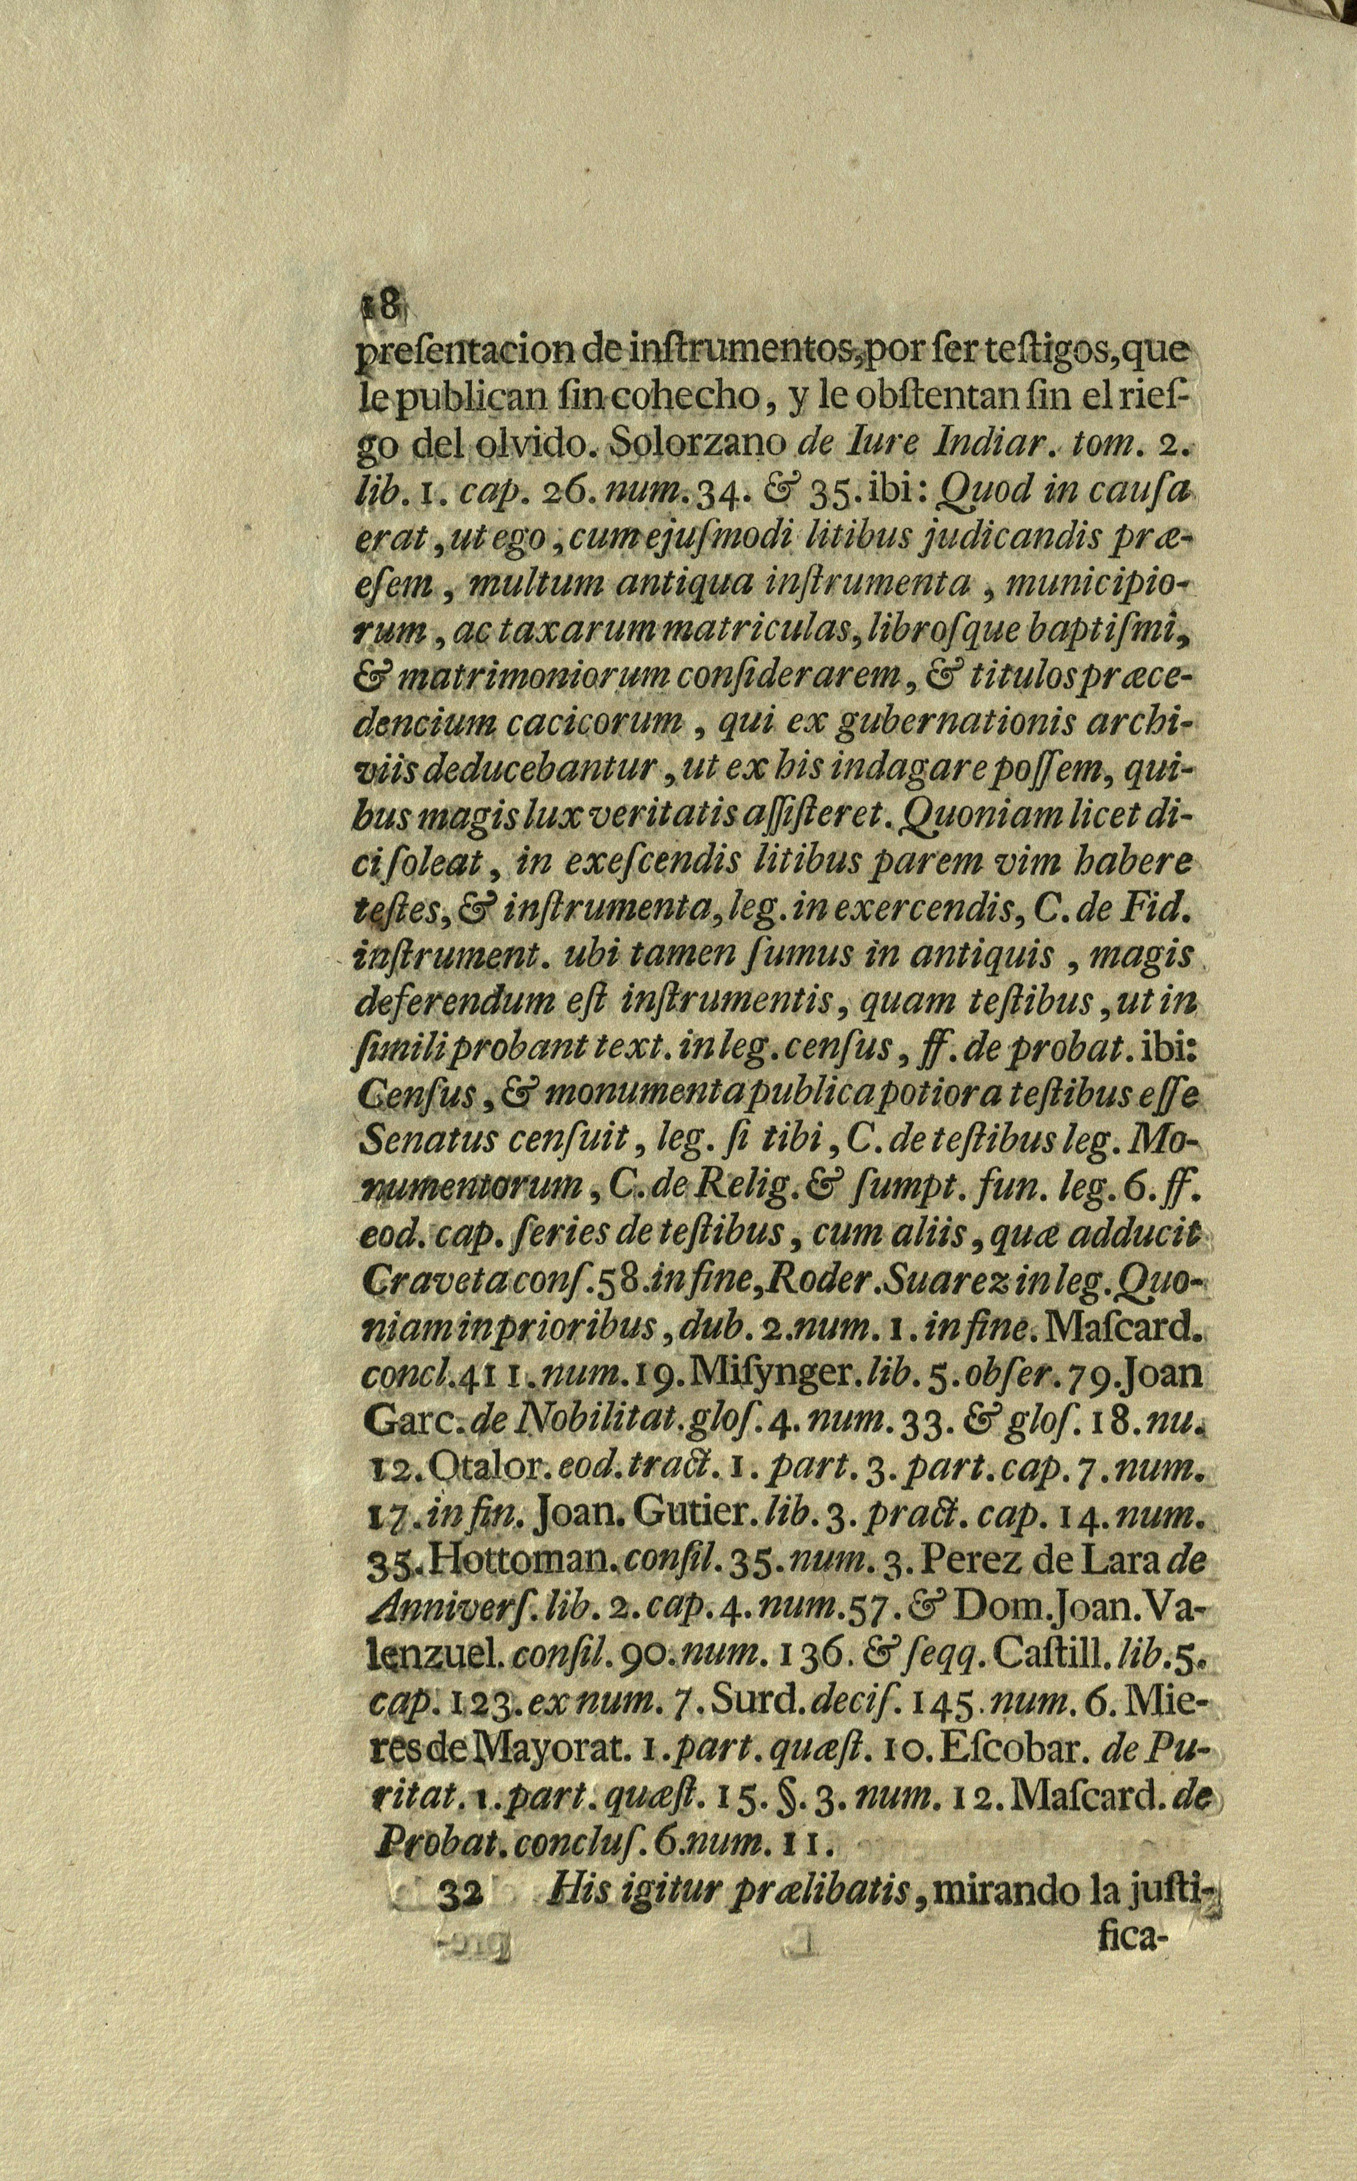 18
preſentacion de inſtrumentos, por ſer teſtigos, que
le publican ſin cohecho, y le obſtentan ſin el rieſ-
go del olvido. Solorzano de Iure Indiar. tom. 2.
lib. 1. cap. 26. num. 34. & 35. ibi: Quod in cauſa
erat, ut ego, cum ejuſmodi litibus judicandis præ-
eſem, multum antiqua inſtrumenta, municipio-
rum, ac taxarum matriculas, libroſque baptiſmi,
& matrimoniorum conſiderarem, & titulos præce-
dencium cacicorum, qui ex gubernationis archi-
viis deducebantur, ut ex his indagare poſſem, qui-
bus magis lux veritatis aſſiſteret. Quoniam licet di-
ci ſoleat, in exeſcendis litibus parem vim habere
teſtes, & inſtrumenta, leg. in exercendis, C. de Fid.
inſtrument. ubi tamen ſumus in antiquis, magis
deferendum eſt inſtrumentis, quam teſtibus, ut in
ſimili probant text. in leg. cenſus, ff. de probat. ibi:
Cenſus, & monumenta publica potiora teſtibus eſſe
Senatus cenſuit, leg. ſi tibi, C. de teſtibus leg. Mo-
numentorum, C. de Relig. & ſumpt. fun. leg. 6. ff.
eod. cap. ſeries de teſtibus, cum aliis, quæ adducit
Craveta conſ. 58. in fine, Roder. Suarez in leg. Quo-
niam in prioribus, dub. 2. num. 1. in fine. Maſcard.
concl. 411. num. 19. Miſynger. lib. 5. obſer. 79. Joan
Garc. de Nobilitat. gloſ. 4. num. 33. & gloſ. 18. nu.
12. Otalor. eod. tract. 1. part. 3. part. cap. 7. num.
17. in fin. Joan. Gutier. lib. 3. pract. cap. 14. num.
35. Hottoman. conſil. 35. num. 3. Perez de Lara de
Anniverſ. lib. 2. cap. 4. num. 57. & Dom. Joan. Va-
lenzuel. conſil. 90. num. 136. & ſeqq. Caſtill. lib. 5.
cap. 123. ex num. 7. Surd. deciſ. 145. num. 6. Mie-
res de Mayorat. 1. part. quæſt. 10. Eſcobar. de Pu-
ritat. 1. part. quæſt. 15. §. 3. num. 12. Maſcard. de
Probat. concluſ. 6. num. 11.
32 His igitur prælibatis, mirando la juſti-
fica-